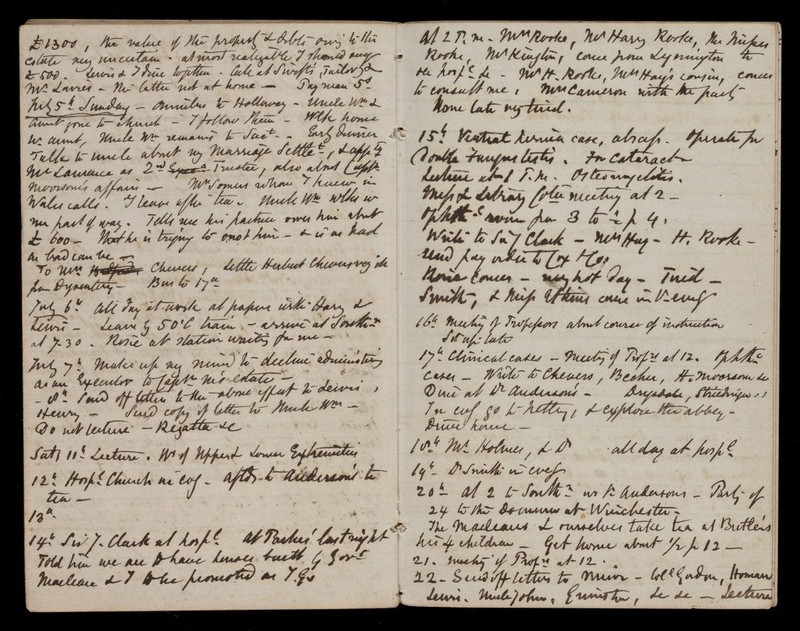 £1300, the value of the property & debts owing to the
estate very uncertain - at most realizable I should say
£500. Lewis & I dine together. Call at Swifts, Tailor, &
Mr. Davies - The latter not at home - Pay man 5d
July 5th Sunday - omnibus to Holloway - Uncle Wm &
aunt gone to church - I follow them - Walk home
w. aunt, Uncle Wm remaining to Sact. - Early dinner
Talk to uncle about my Marriage Settlet, & appg
Mr Lawrance as 2nd Trustee, also about Capt.
Moorsom's affairs - Mr Somers whom I knew in
Wales calls. I leave after tea. Uncle Wm walks w
me part of way. Tells me his partner owes him about
£600 - he is trying to oust him - & is as bad
as bad can be -
To Mrs. Chevers, little Herbert Chevers very ill
from Dysentery - Bus to 17a
July 6th All day at work at papers with Harry &
Lewis - Leave by 5 o'C train - arrive at Southn
at 7.30. Rosie at station waiting for me -
July 7th Make up my mind to decline administering
as an Executor to Capt. M's estate -
- 8th Send off letters to the above effect to Lewis,
Henry - Send copy of letter to Uncle Wm -
Do not lecture - Regatta &c
Saty 11th Lecture. Ws of Upper & Lower Extremities
12th Hospl Church in evg - aftds to Anderson's to
tea -
13th
14th Sir J. Clark at hospl. At Parkes' last night
Told him we are to have houses built by Govt
Maclean & I to be promoted as I.Gs
At 2 P.m. Mrs Rooke, Mrs Harry Rooke, the Misses
Rooke, Mrs Kington, come from Lymington to
see hospl &c - Mr H. Rooke, Mrs Hay's cousin, comes
to consult me, Mrs Cameron with the party
Home late very tired.
15th Ventral hernia case, abscess. Operate for
Double Fungus testis. For cataract
Lecture at 1 P.m. Osteomyelitis.
Mess & Library Cotee meeting at 2 -
Ophthc room from 3 to ½ p 4.
Write to Sir J Clark - Mrs Hay - H. Rooke -
send pay order to Cox & Co.
Rosie comes - very hot day - Tired -
Smith, & Miss Atkins come in evg
16th Meeting of Professors about course of instruction
Sit up late
17th Clinical cases - Meetg of Profrs at 12. Ophthc
cases - Write to Chevers, Becher, H. Moorsom &c
Dine at Dr Anderson's - Drysdale,
In evg go to Netley, & explore the abbey -
Drive home -
18th Mr. Holmes, & Dr all day at hospl.
19th Dr Smith in evg
20th At 2 to Southn w Dr Andersons - Party of
24 to the at Winchester -
The Macleans & ourselves take tea at Butler's
his 4 children - Get home about ½ p 12 -
21. Meetg of Profrs at 12.
22 - Send off letters to Muir - Coll Gordon, Homan
Lewis. Uncle John, &c &c - Lecture